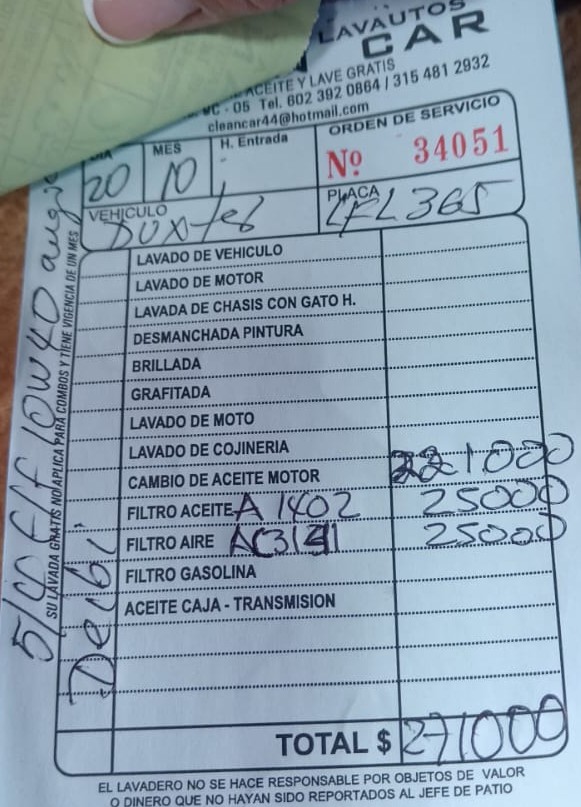 LAVAUTOS
CAR
ACEITE Y LAVE GRATIS
- 05 Tel. 602 392 0864 / 315 481 2932
cleancar44@hotmail.com
MES
H. Entrada
ORDEN DE SERVICIO
20
10
Nº 34051
VEHICULO
Duster
PLACA
365
LAVADO DE VEHICULO
LAVADO DE MOTOR
LAVADA DE CHASIS CON GATO H.
DESMANCHADA PINTURA
BRILLADA
GRAFITADA
LAVADO DE MOTO
LAVADO DE COJINERIA
CAMBIO DE ACEITE MOTOR 221000
FILTRO ACEITE A 1402 25000
FILTRO AIRE 25000
FILTRO GASOLINA
ACEITE CAJA - TRANSMISION
TOTAL $ 271000
EL LAVADERO NO SE HACE RESPONSABLE POR OBJETOS DE VALOR
O DINERO QUE NO HAYAN SIDO REPORTADOS AL JEFE DE PATIO
SU LAVADA GRATIS NO APLICA PARA COMBOS Y TIENE VIGENCIA DE UN MES
10W40